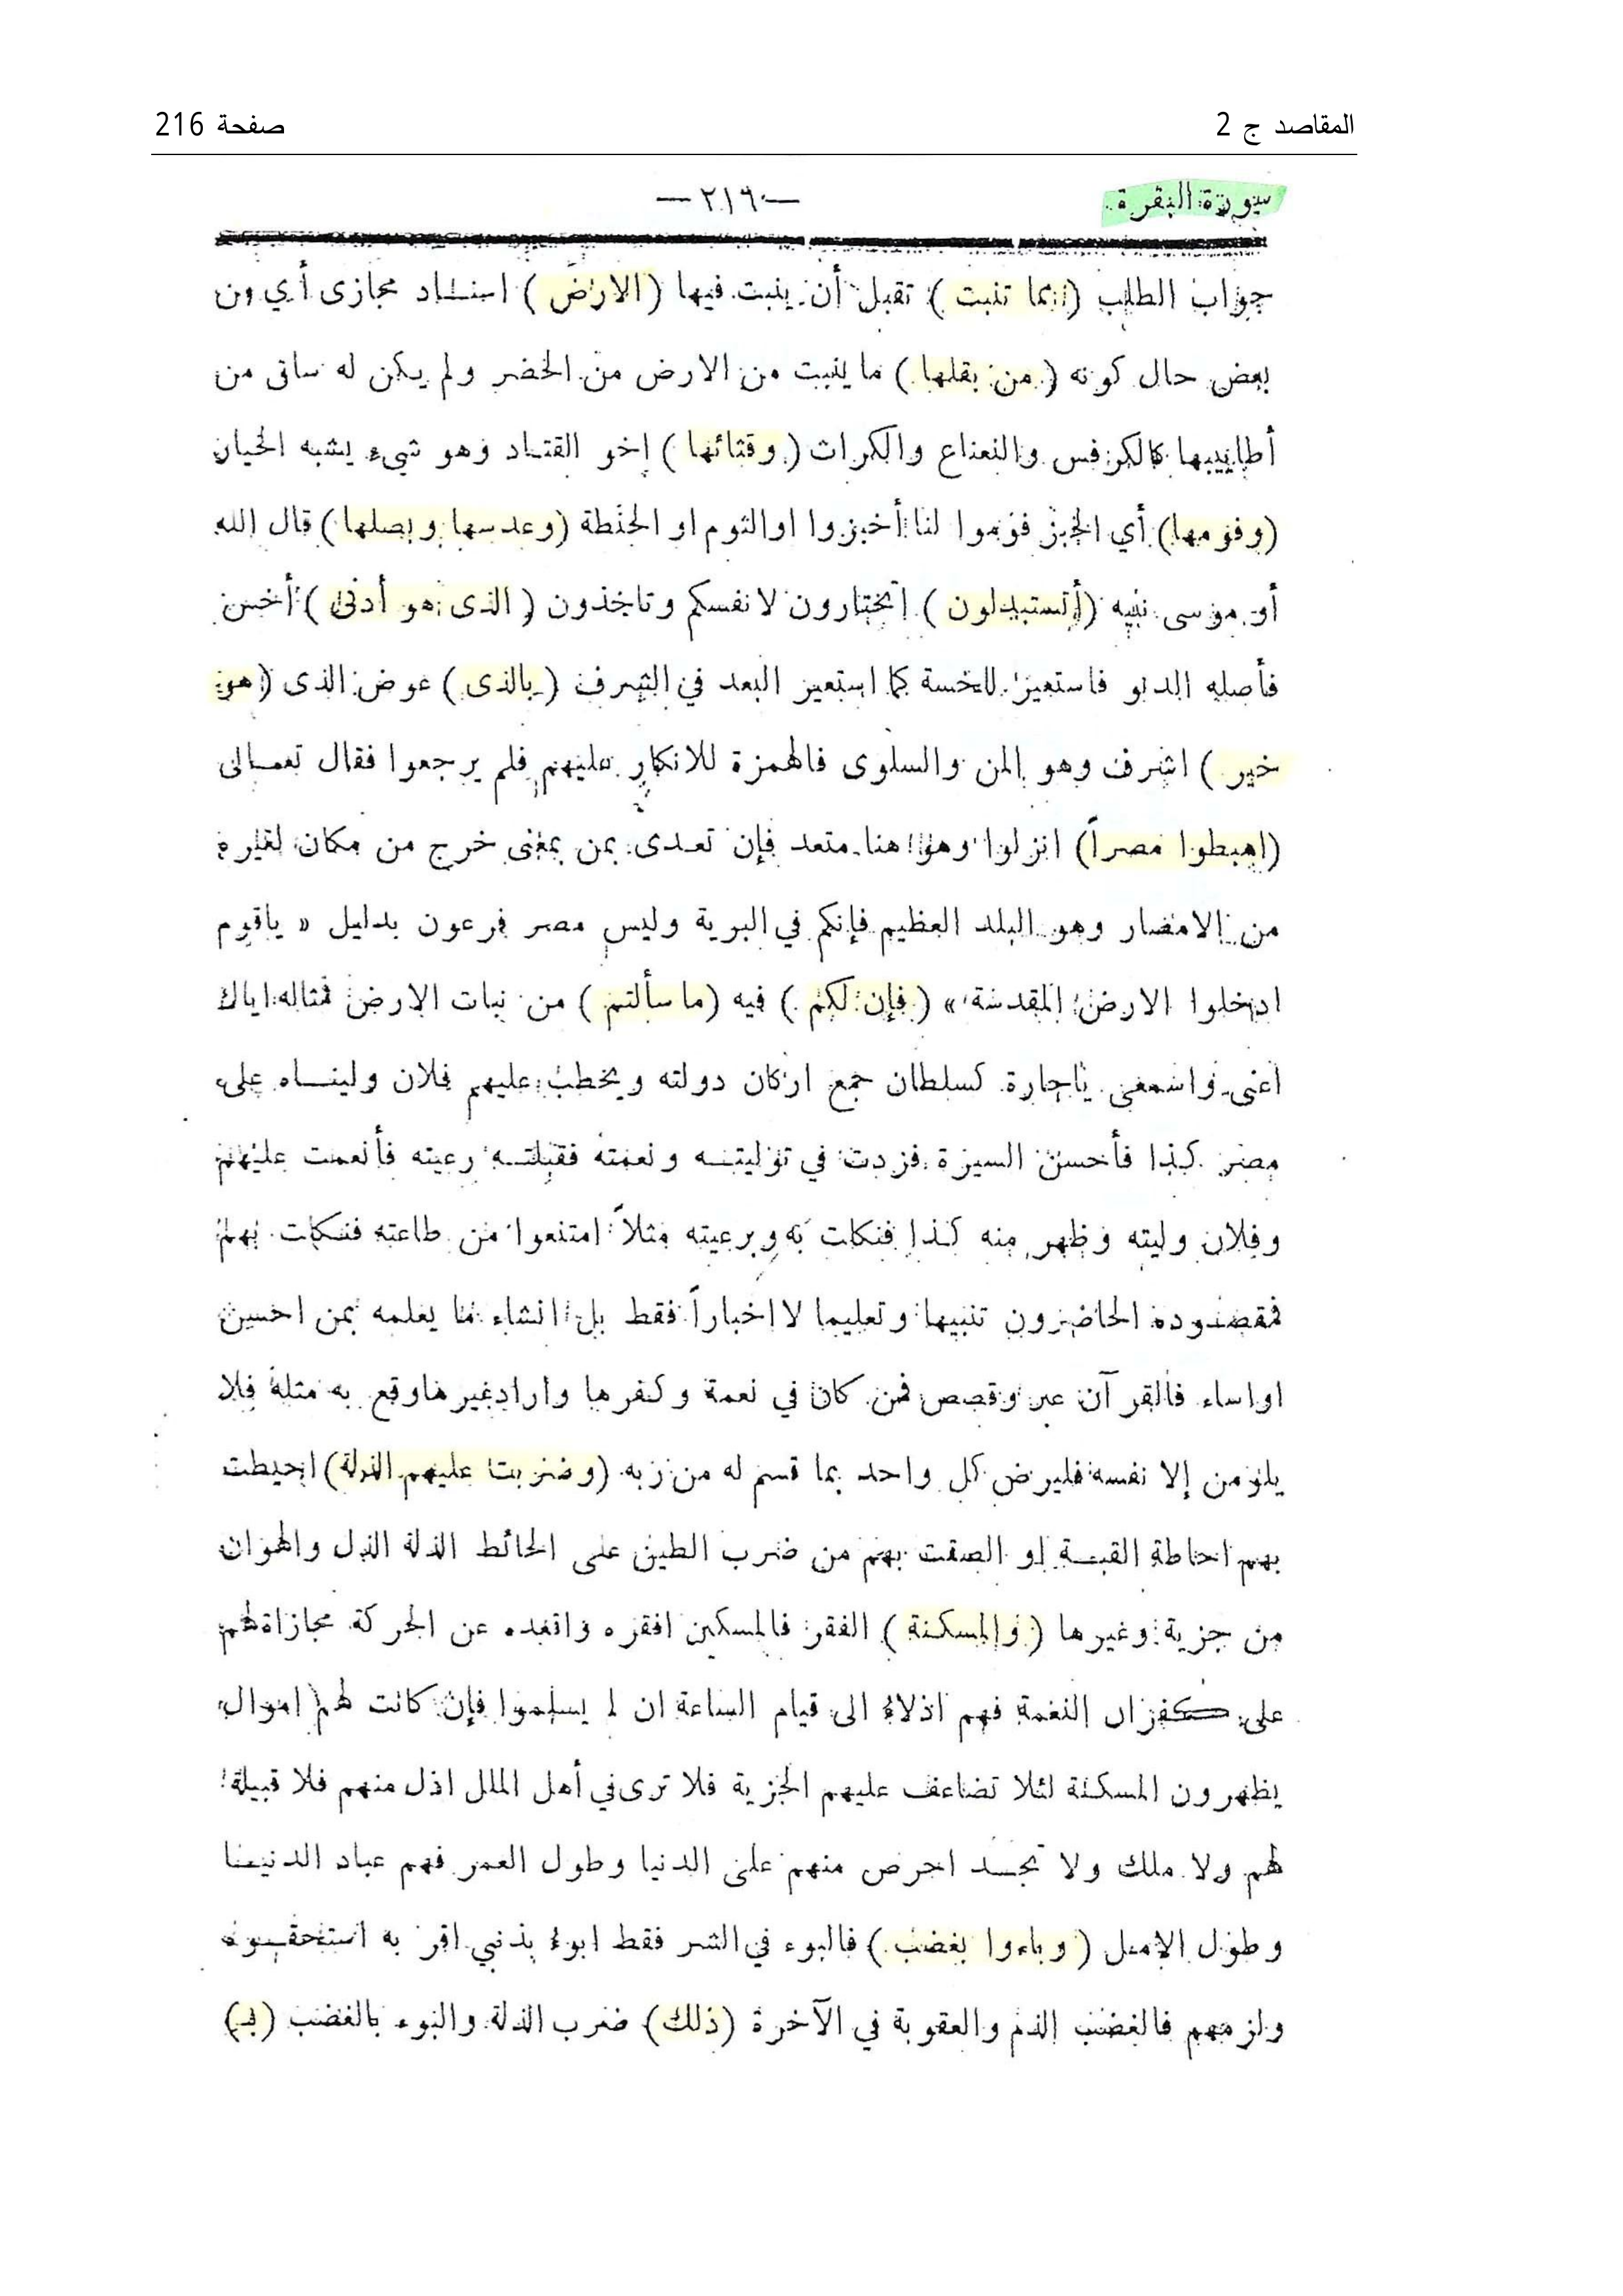 المقاصد ج 2
صفحة 216
سورة البقرة
— ٢١٦ —
جواب الطلب (مما تنبت) تقبل أن ينبت فيها (الارض) اسناد مجازى أي ون
بعض حال كونه (من بقلها) ما ينبت من الارض من الخضر ولم يكن له ساق من
أطاييبها كالكرفس والنعناع والكراث (وقثائها) إخو القتاد وهو شيء يشبه الخيار
(وفومها) أي الخبز فوموا لنا أخبزوا اوالثوم او الحنطة (وعدسها وبصلها) قال الله
أو موسى نبيه (أتستبدلون) اتختارون لانفسكم وتاخذون (الذى هو أدنى) أخس
فأصله الدنو فاستعير للخسة كما استعير البعد في الشرف (بالذى) عوض الذى (هو
خير) اشرف وهو المن والسلوى فالهمزة للانكار عليهم فلم يرجعوا فقال تعالى
(اهبطوا مصراً) انزلوا وهو هنا متعد فإن تعدى بمن بمعنى خرج من مكان لغيره
من الامصار وهو البلد العظيم فإنكم في البرية وليس مصر فرعون بدليل « ياقوم
ادخلوا الارض المقدسة » (فإن لكم) فيه (ما سألتم) من نبات الارض فمثاله اياك
اعنى واسمعى ياجارة كسلطان جمع اركان دولته ويخطب عليهم فلان وليناه على
مصر كذا فأحسن السيرة فزدت في توليته ونعمته فقبلته رعيته فأنعمت عليهم
وفلان وليته وظهر منه كذا فنكات به وبرعيته مثلاً امتنعوا من طاعته فنكات بهم
فمقصوده الحاضرون تنبيها وتعليما لا اخباراً فقط بل انشاء ما يعلمه بمن احسن
او اساء فالقرآن عبر وقصص فمن كان في نعمة وكفرها واراد غيرها وقع به مثله فلا
يلومن إلا نفسه فليرض كل واحد بما قسم له من ربه (وضربت عليهم الذلة) احيطت
بهم احاطة القبة او الصقت بهم من ضرب الطين على الحائط الذلة الذل والهوان
من جزية وغيرها (والمسكنة) الفقر فالمسكين افقره واقعده عن الحركة مجازاة لهم
على كفران النعمة فهم اذلاء الى قيام الساعة ان لم يسلموا فإن كانت لهم اموال
يظهرون المسكنة لئلا تضاعف عليهم الجزية فلا ترى في أهل الملل اذل منهم فلا قبيلة
لهم ولا ملك ولا تجد احرص منهم على الدنيا وطول العمر فهم عباد الدنيا
وطول الامل (وباءوا بغضب) فالبوء في الشر فقط ابوء بذنبي اقر به استحقوه
ولزمهم فالغضب الذم والعقوبة في الآخرة (ذلك) ضرب الذلة والبوء بالغضب (بـ)